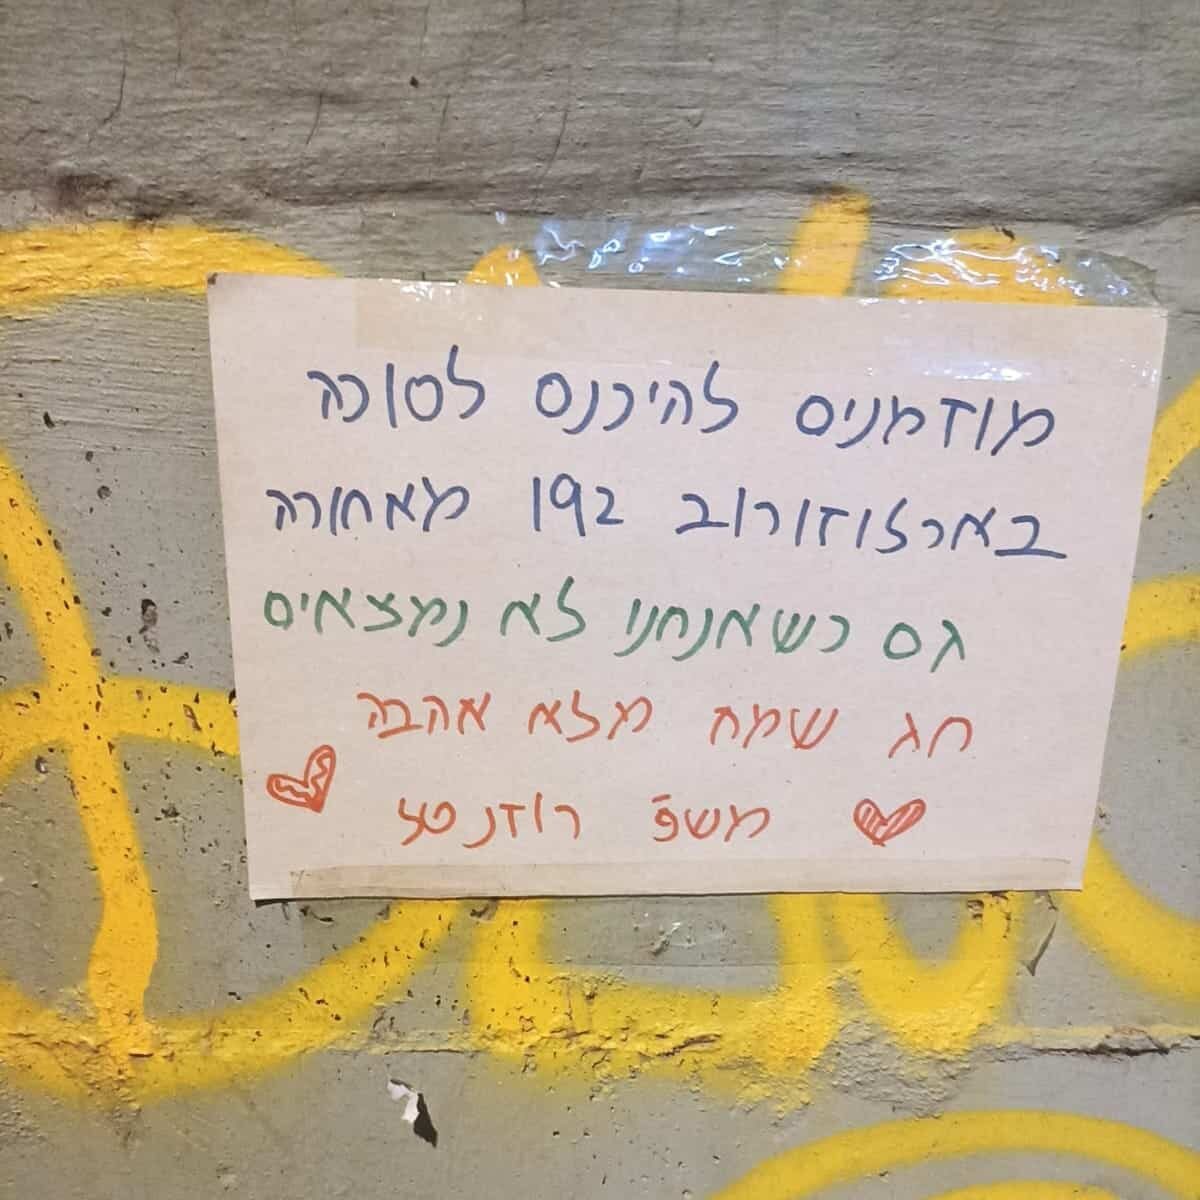 מוזמנים להיכנס לסוכה
בארלוזורוב 192 מאחורה
גם כשאנחנו לא נמצאים
חג שמח מלא אהבה
משפ' רוזנטל